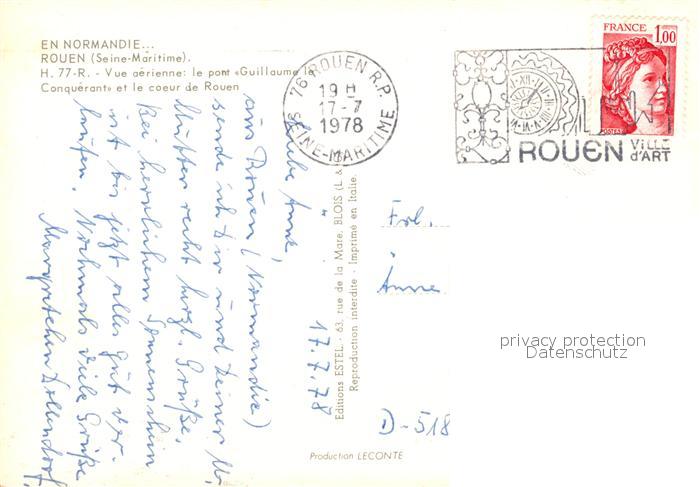 EN NORMANDIE...
ROUEN (Seine-Maritime).
H. 77-R. - Vue aérienne: le pont «Guillaume le
Conquérant» et le coeur de Rouen
76 ROUEN R.P.
19 H
17-7
1978
SEINE-MARITIME
ROUEN VILLE
d'ART
FRANCE 1,00
POSTES
17.7.78
Liebe Anne,
aus Rouen (Normandie)
sende ich Dir und Deiner
Mutter recht herzl. Grüße.
Bei herrlichem Sonnenschein
ist bis jetzt alles gut ver-
laufen. Nochmals viele Grüße
Margretchen Dollendorf
Editions ESTEL. - 63, rue de la Mare, BLOIS (L. &
Reproduction interdite - Imprimé en Italie.
Production LECONTE
Frl.
Änne
D-518
privacy protection
Datenschutz